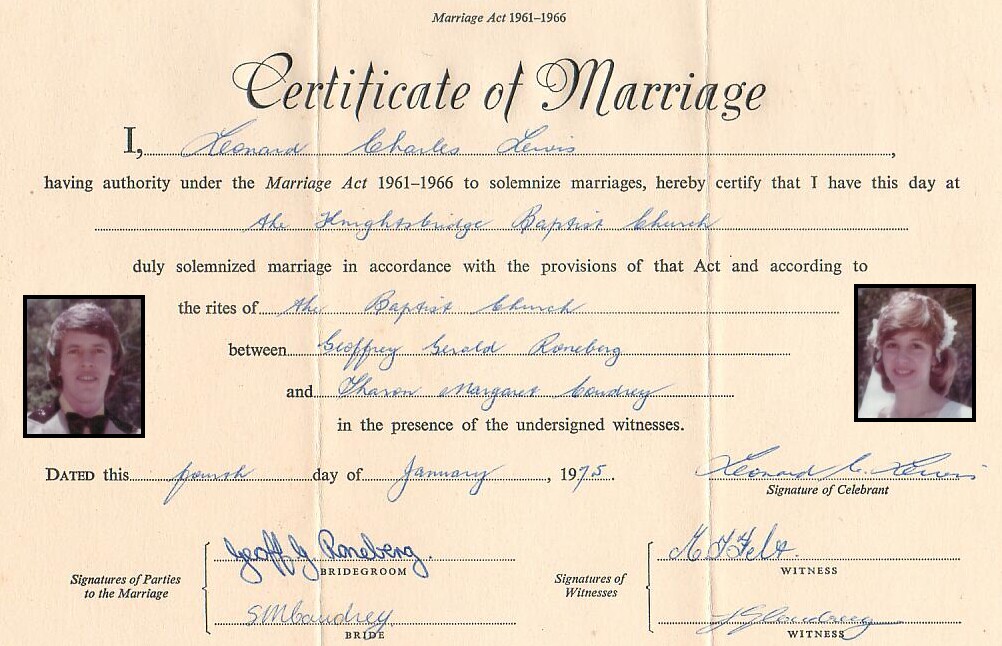 Marriage Act 1961–1966
Certificate of Marriage
I, Leonard Charles Lewis,
having authority under the Marriage Act 1961–1966 to solemnize marriages, hereby certify that I have this day at
the Knightsbridge Baptist Church
duly solemnized marriage in accordance with the provisions of that Act and according to
the rites of the Baptist Church
between Geoffrey Gerald Roneberg
and Sharon Margaret Caudrey
in the presence of the undersigned witnesses.
DATED this fourth day of January, 1975.
Leonard C. Lewis
Signature of Celebrant
Signatures of Parties to the Marriage
Geoff G Roneberg.
BRIDEGROOM
SMCaudrey
BRIDE
Signatures of Witnesses
WITNESS
WITNESS